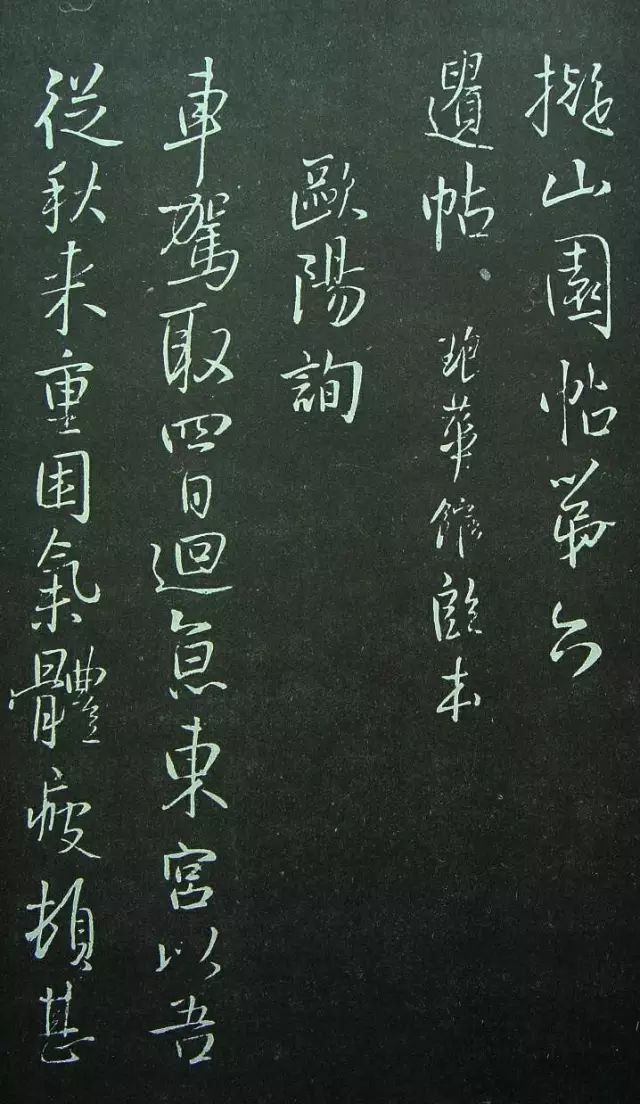 擬山園帖第六
遺帖 琅華館臨本
歐陽詢
車駕取四日迴東宮以吾
從秋来重困氣體疲頓甚